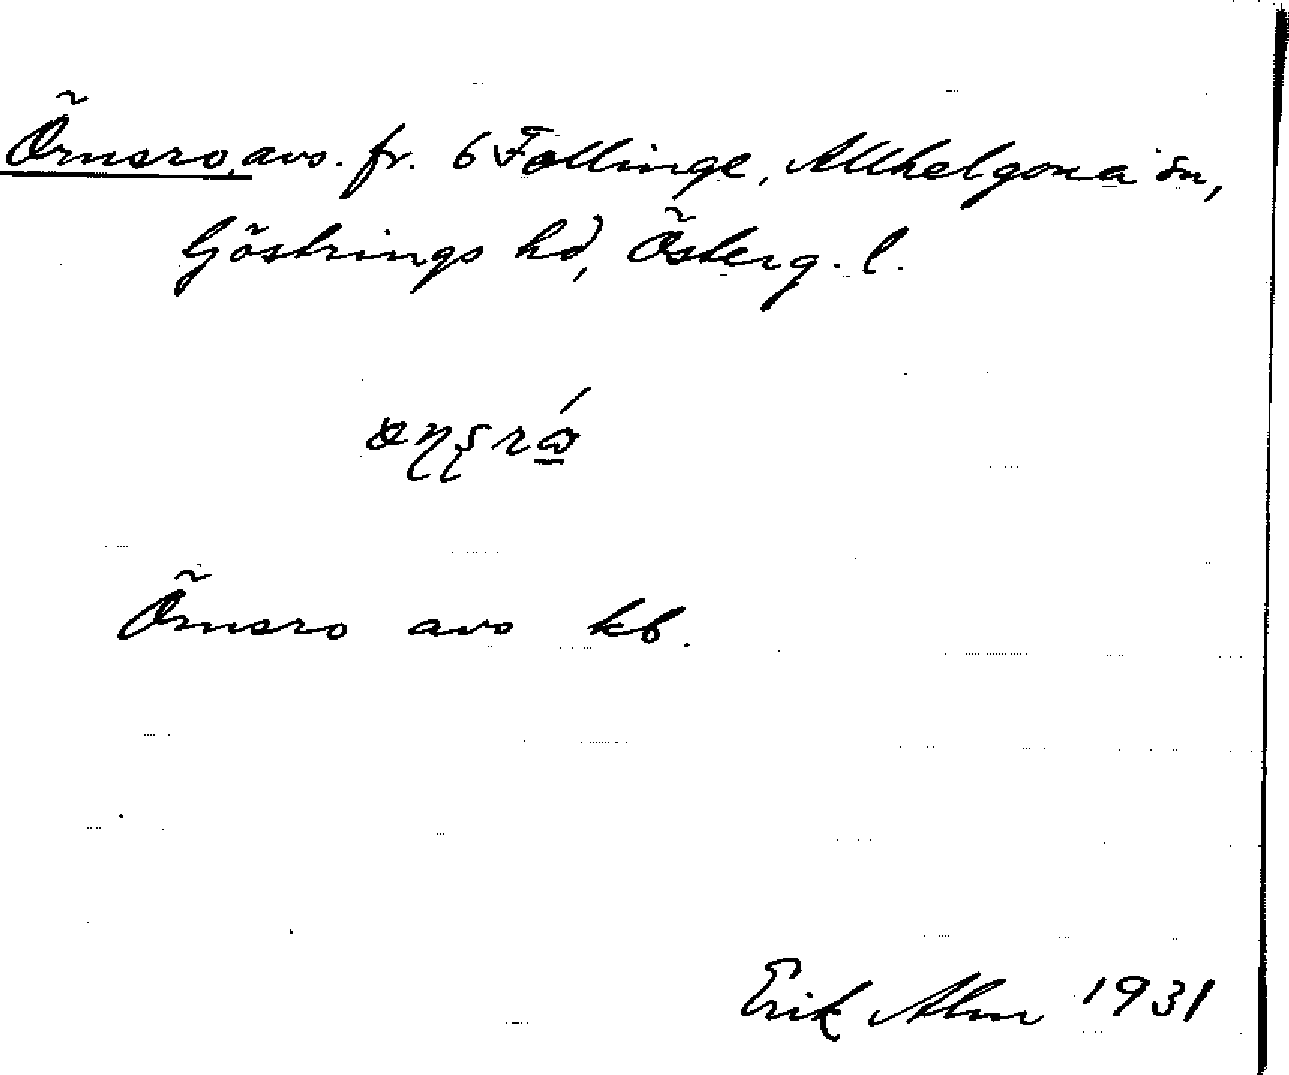 Örnsro, avs. fr. 6 Fallinge, Allhelgona sn,
Göstrings hd, Österg. l.
Örnsro avs kb.
Erik Alm 1931